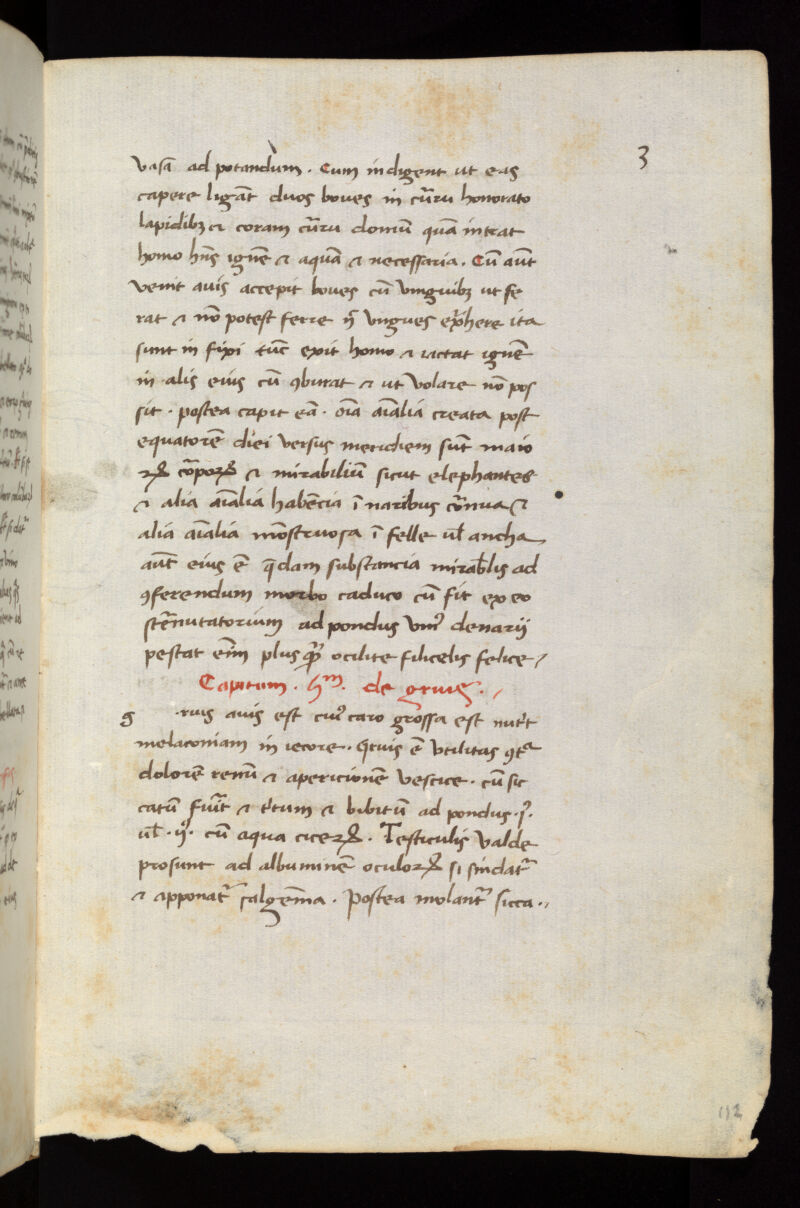 3
vasā ad potandum. Cum indigent ut eas
capere ligāt duos boves in curru honorato
lapidibꝫ ⁊ coram curru domū quā intrat
homo hn̄s ignē ⁊ aquā ⁊ necessaria. Cū aūt
venit avis accepit boves cū unguibꝫ ut fe
rat ⁊ nō potest ferre n̄ ungues ext͛here ita
sunt in fixi tūc exit homo ⁊ iactat ignē
in alis eius cū ꝯburat ⁊ ut volare nō pos
sit. postea capit eā. oīa aīalia creata post
equatorē diei versus meridiem sūt maio
ꝝ corporꝝ ⁊ mirabiliū sicut elephantes
⁊ alia aīalia habēcia ī naribus cornua ⁊
alia aīalia mōstruosa ī felle ul̄ ancha
aūt eius ē q̄dam substancia mirab̄lis ad
ꝯferendum morbo caduco cū fit ex eo
st̄nutatorium ad pondus uni᾽ denarii
pestat enī plus ocilite filicelis felice
Capitum. hm. de gruis.
g
.ruis avis est cui᾽ caro grossa est nut͛t
melaconiam in iecore. Gruis ē utilitas ꝯt͛a
dolorē renū ⁊ apericionē vescice. cū sic
catū fūit ⁊ t͛tum ⁊ bibitū ad pondus .j.
ul̄ .ij. cū aqua ciceꝝ. Testiculis valde
prosunt ad albuminē oculoꝝ si sindat᷑
⁊ apponat᷑ salgēma. Postea molant᷑ sicca.
112